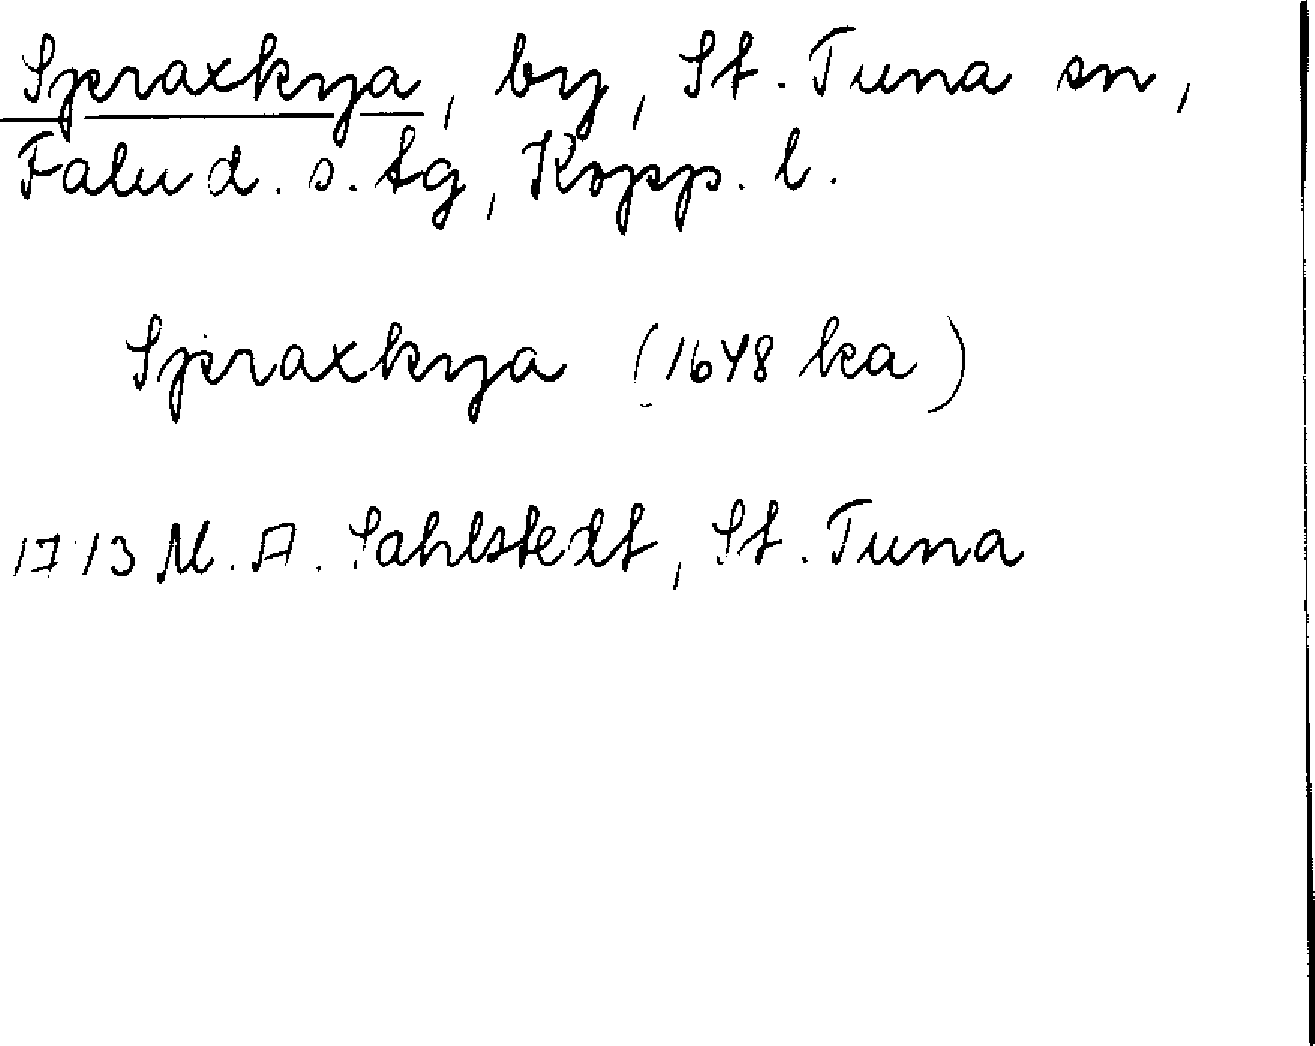 Spraxkya, by, St. Tuna sn,
Falu d. s. tg, Kopp. l.
Spraxkya (1648 ka)
1713 M. A. Sahlstedt, St. Tuna